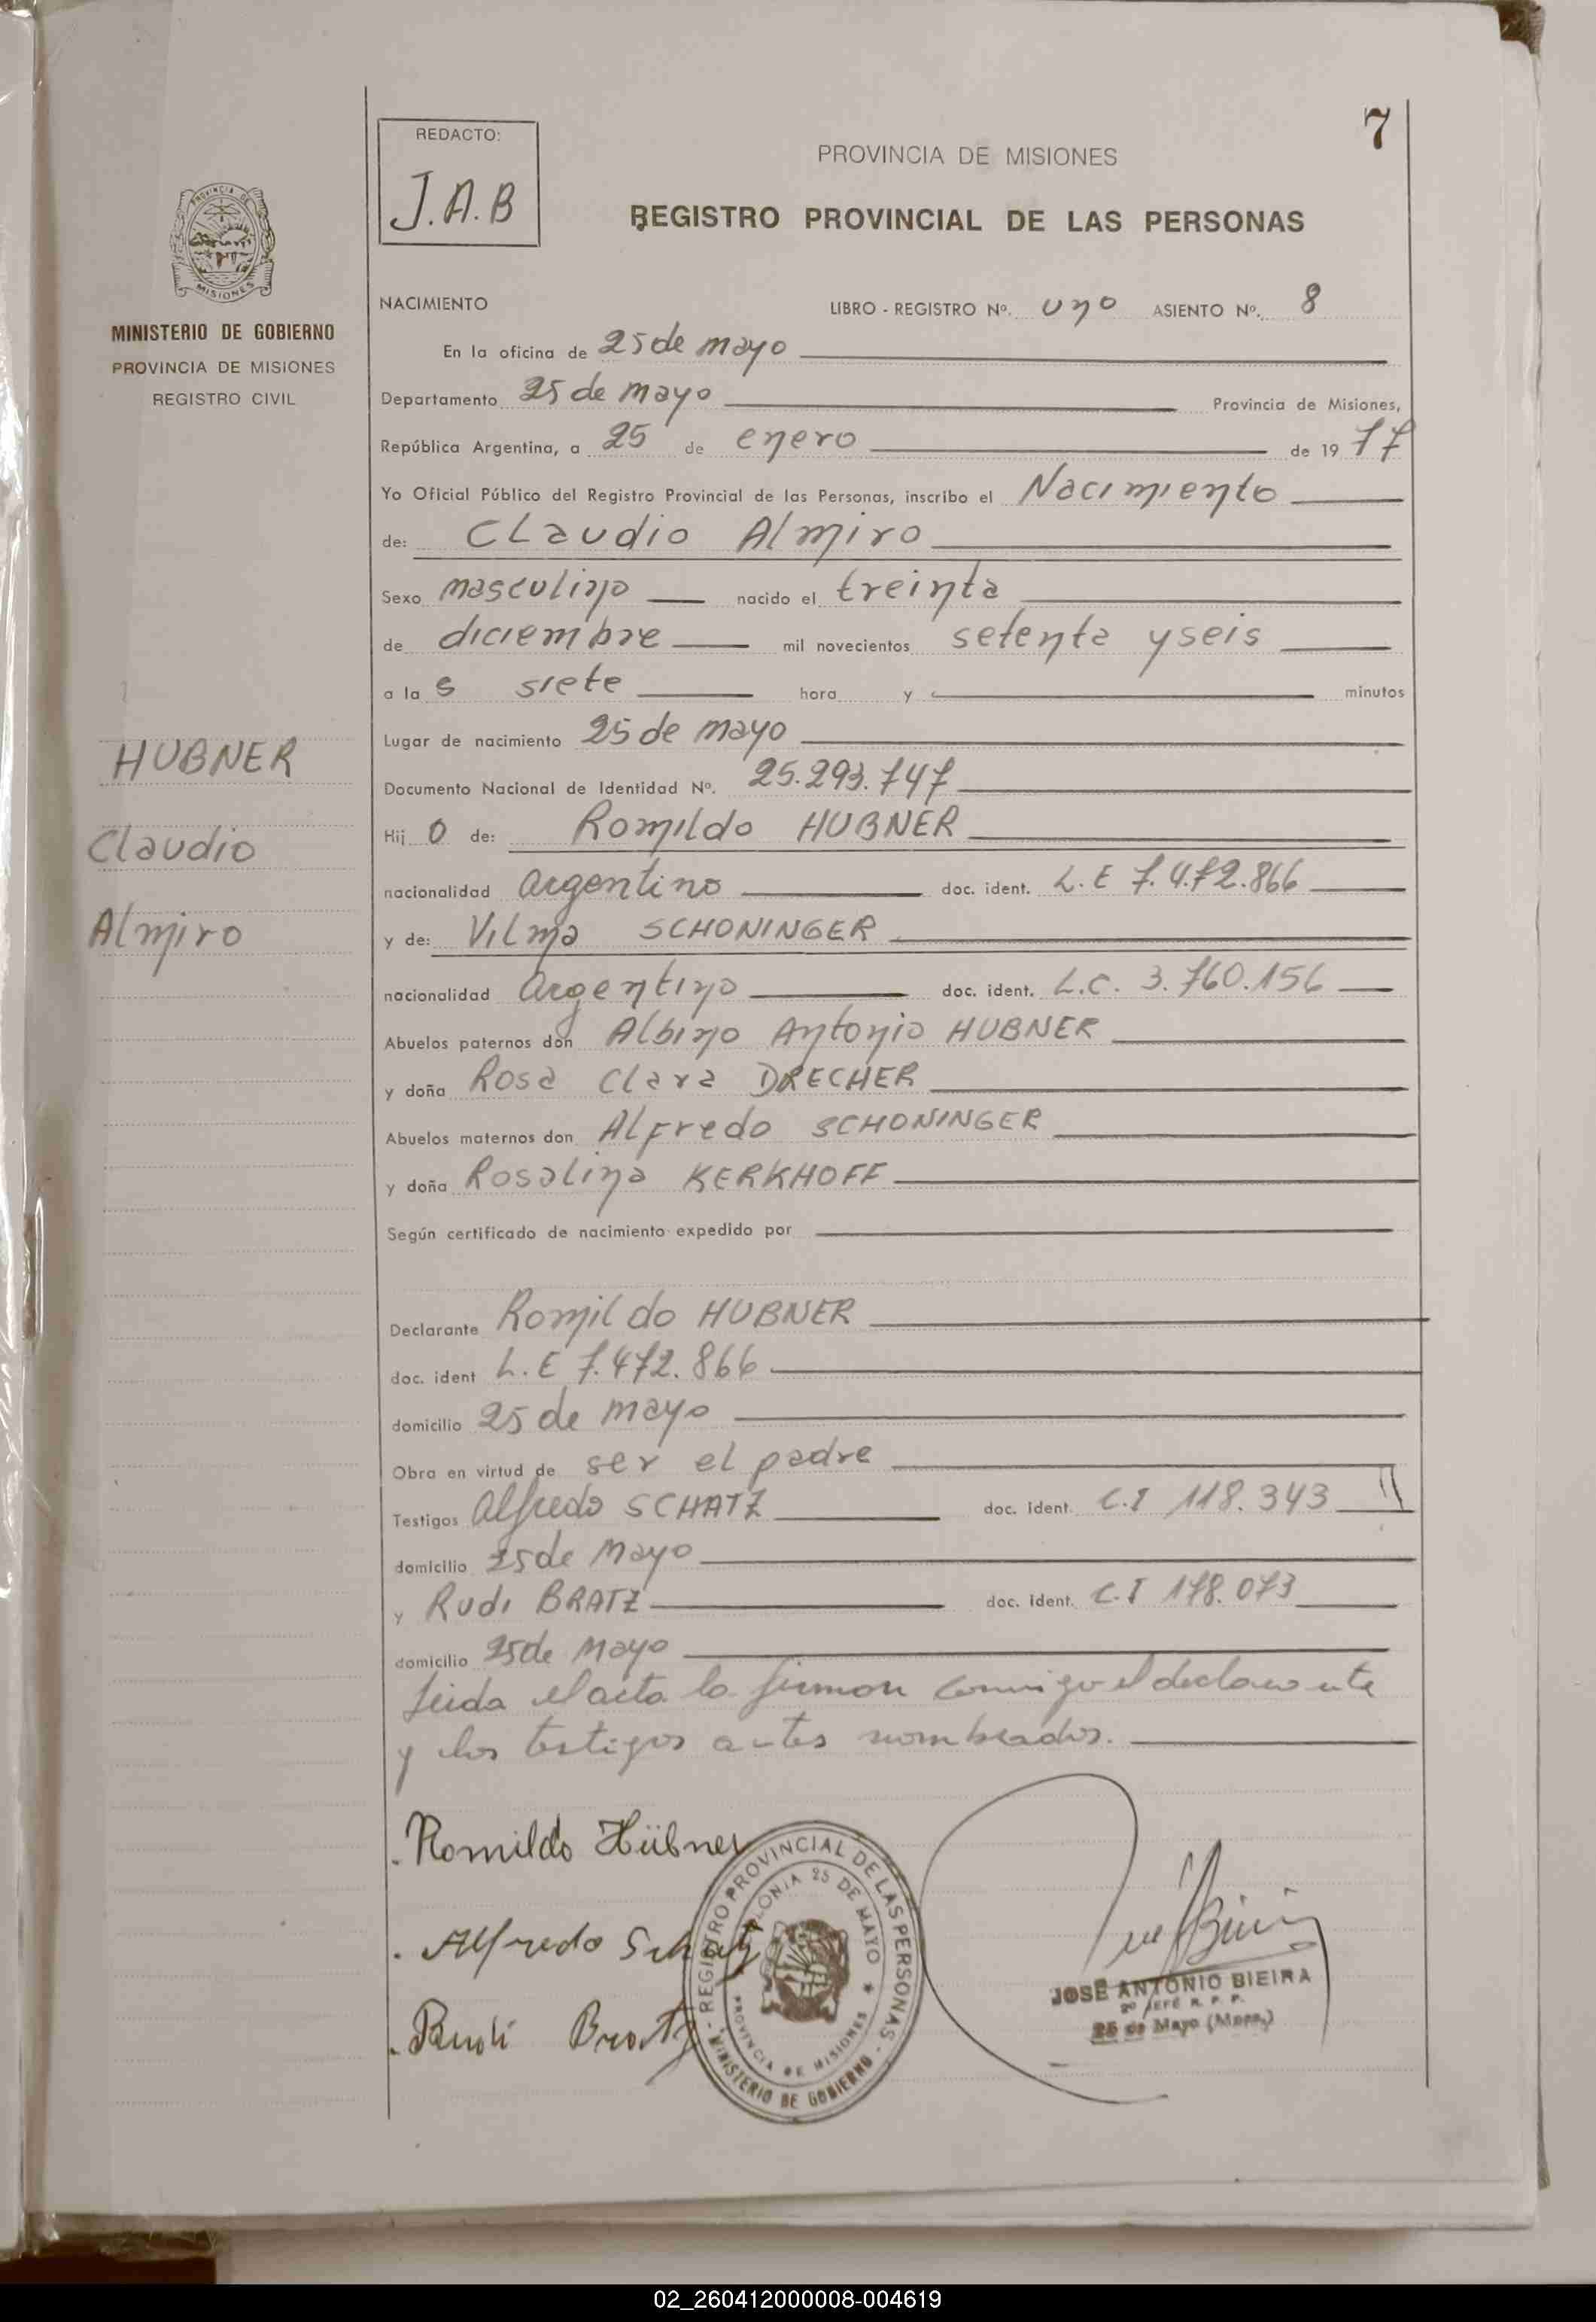 7
REDACTO:
J.A.B
PROVINCIA DE MISIONES
REGISTRO PROVINCIAL DE LAS PERSONAS
PROVINCIA DE
MISIONES
MINISTERIO DE GOBIERNO
PROVINCIA DE MISIONES
REGISTRO CIVIL
NACIMIENTO LIBRO - REGISTRO Nº. uno ASIENTO Nº. 8
En la oficina de 25 de mayo
Departamento 25 de mayo Provincia de Misiones,
República Argentina, a 25 de enero de 19 77
Yo Oficial Público del Registro Provincial de las Personas, inscribo el Nacimiento
de: Claudio Almiro
Sexo masculino nacido el treinta
de diciembre mil novecientos setenta y seis
a la s siete hora y minutos
Lugar de nacimiento 25 de mayo
HUBNER
Documento Nacional de Identidad Nº. 25.293.747
Hij o de: Romildo HUBNER
Claudio
nacionalidad argentino doc. ident. L.E 7.472.866
Almiro
y de: Vilma SCHONINGER
nacionalidad argentino doc. ident. L.C. 3.760.156
Abuelos paternos don Albino Antonio HUBNER
y doña Rosa Clara DRECHER
Abuelos maternos don Alfredo SCHONINGER
y doña Rosalina KERKHOFF
Según certificado de nacimiento expedido por
Declarante Romildo HUBNER
doc. ident L.E 7.472.866
domicilio 25 de mayo
Obra en virtud de ser el padre
Testigos Alfredo SCHATZ doc. ident. C.I 118.343
domicilio 25 de Mayo
y Rudi BRATZ doc. ident. C.I 178.073
domicilio 25 de Mayo
Leida el acta la firman conmigo el declarante
y los testigos antes nombrados.
Romildo Hübner
Alfredo Schatz
Rudi Bratz
REGISTRO PROVINCIAL DE LAS PERSONAS - MINISTERIO DE GOBIERNO -
COLONIA 25 DE MAYO
PROVINCIA DE MISIONES
JOSE ANTONIO BIEIRA
2º JEFE R. P. P.
25 de Mayo (Mnes.)
02_260412000008-004619